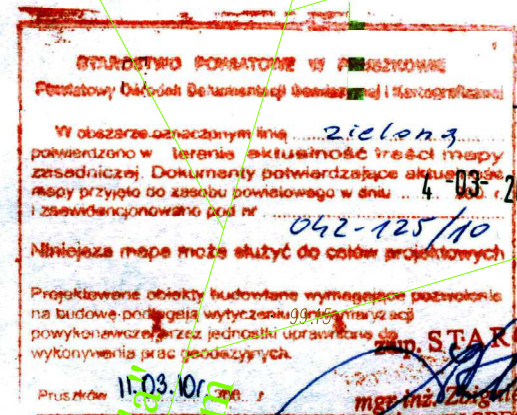 STAROSTWO POWIATOWE W PRUSZKOWIE
Powiatowy Ośrodek Dokumentacji Geodezyjnej i Kartograficznej
W obszarze oznaczonym linią zieloną
potwierdzono w terenie aktualność treści mapy
zasadniczej. Dokumenty potwierdzające aktualność
mapy przyjęto do zasobu powiatowego w dniu 4 -03- 2
i zaewidencjonowano pod nr 042-125/10
Niniejsza mapa może służyć do celów projektowych
Projektowane obiekty budowlane wymagające pozwolenia
na budowę podlegają wytyczeniu i inwentaryzacji
99.15
powykonawczej przez jednostki uprawnione do
wykonywania prac geodezyjnych.
zup. STAR
Pruszków 11.03.10r 200 r.
mgr inż. Zbigni